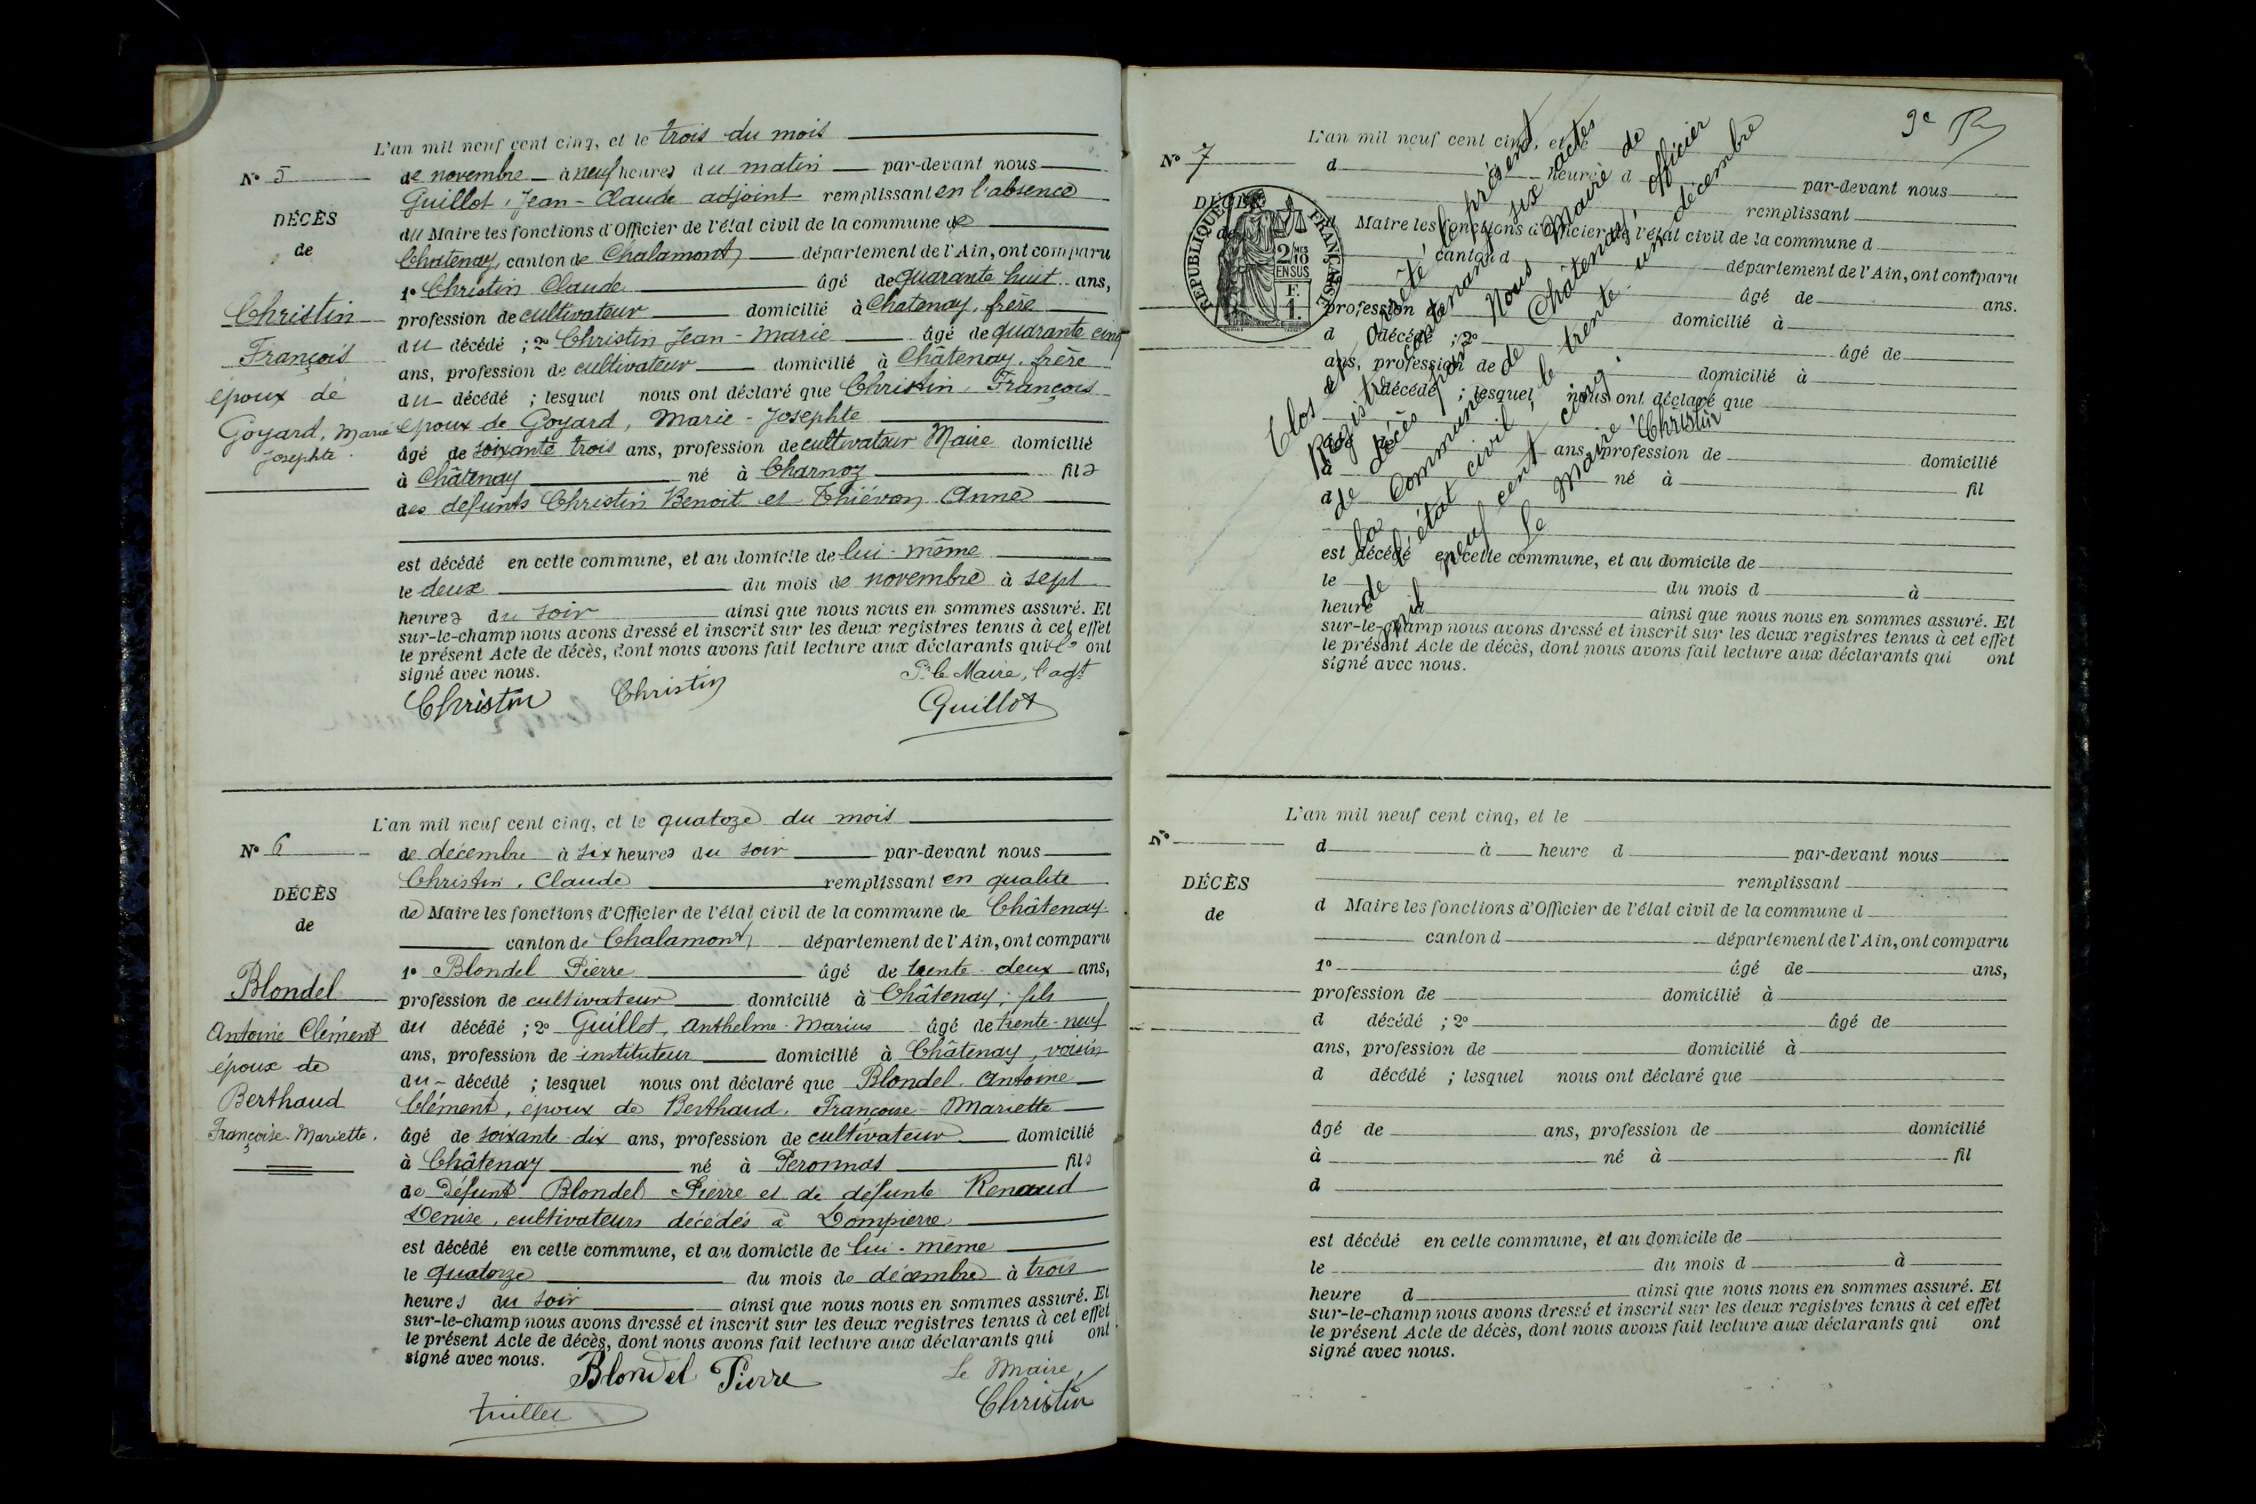 L'an mil neuf cent cinq, et le trois du mois
N° 5
de novembre à neuf heures du matin par-devant nous
Guillot, Jean-Claude adjoint remplissant en l'absence
DÉCÈS
du Maire les fonctions d'Officier de l'état civil de la commune de
de
Chatenay, canton de Chalamont département de l'Ain, ont comparu
1° Christin Claude âgé de quarante huit ans,
Christin
profession de cultivateur domicilié à Chatenay, frère
du décédé ; 2° Christin Jean-Marie âgé de quarante cinq
François
ans, profession de cultivateur domicilié à Châtenay, frère
époux de
du décédé ; lesquel nous ont déclaré que Christin, François
Goyard, Marie
époux de Goyard, Marie-Josephte
Josephte.
âgé de soixante trois ans, profession de cultivateur Maire domicilié
à Châtenay né à Charnoz fils
des défunts Christin Benoit et Thiévon Anne
est décédé en cette commune, et au domicile de lui-même
le deux du mois de novembre à sept
heures du soir ainsi que nous nous en sommes assuré. Et
sur-le-champ nous avons dressé et inscrit sur les deux registres tenus à cet effet
le présent Acte de décès, dont nous avons fait lecture aux déclarants qui l' ont
signé avec nous.
Pr le Maire, l'adjt
Christin Christin Guillot
L'an mil neuf cent cinq, et le quatoze du mois
N° 6
de décembre à six heures du soir par-devant nous
Christin, Claude remplissant en qualité
DÉCÈS
de Maire les fonctions d'Officier de l'état civil de la commune de Châtenay
de
canton de Chalamont, département de l'Ain, ont comparu
1° Blondel Pierre âgé de trente-deux ans,
Blondel
profession de cultivateur domicilié à Châtenay, fils
Antoine Clément
du décédé ; 2° Guillet, Anthelme-Marius âgé de trente-neuf
ans, profession de instituteur domicilié à Châtenay, voisin
époux de
du décédé ; lesquel nous ont déclaré que Blondel, Antoine
Berthaud
Clément, époux de Berthaud, Françoise-Mariette
Françoise-Mariette.
âgé de soixante-dix ans, profession de cultivateur domicilié
à Châtenay né à Péronnas fils
de Défunt Blondel Pierre et de défunte Renaud
Denise, cultivateurs décédés à Dompierre
est décédé en cette commune, et au domicile de lui-même
le quatorze du mois de décembre à trois
heures du soir ainsi que nous nous en sommes assuré. Et
sur-le-champ nous avons dressé et inscrit sur les deux registres tenus à cet effet
le présent Acte de décès, dont nous avons fait lecture aux déclarants qui ont
signé avec nous.
Blondel Pierre
Le Maire,
Guillet
Christin
9e
L'an mil neuf cent cinq, et le
N° 7
d heure d par-devant nous
remplissant
DÉCÈS
d Maire les fonctions d'Officier de l'état civil de la commune d
de
canton d département de l'Ain, ont comparu
RÉPUBLIQUE FRANÇAISE
2/10
EN SUS
F.
1.
âgé de ans.
profession de domicilié à
d décédé ; 2° âgé de
ans, profession de domicilié à
d décédé ; lesquel nous ont déclaré que
âgé de ans, profession de domicilié
à né à fil
d
est décédé en cette commune, et au domicile de
le du mois d à
heure d ainsi que nous nous en sommes assuré. Et
sur-le-champ nous avons dressé et inscrit sur les deux registres tenus à cet effet
le présent Acte de décès, dont nous avons fait lecture aux déclarants qui ont
signé avec nous.
Clos et arrêté le présent
Registre contenant six actes
de décès par Nous Maire de
la Commune de Châtenay, officier
de l'état civil, le trente-un décembre
mil neuf cent cinq.
Le Maire
Christin
L'an mil neuf cent cinq, et le
N°
d à heure d par-devant nous
remplissant
DÉCÈS
d Maire les fonctions d'Officier de l'état civil de la commune d
de
canton d département de l'Ain, ont comparu
1° âgé de ans,
profession de domicilié à
d décédé ; 2° âgé de
ans, profession de domicilié à
d décédé ; lesquel nous ont déclaré que
âgé de ans, profession de domicilié
à né à fil
d
est décédé en cette commune, et au domicile de
le du mois d à
heure d ainsi que nous nous en sommes assuré. Et
sur-le-champ nous avons dressé et inscrit sur les deux registres tenus à cet effet
le présent Acte de décès, dont nous avons fait lecture aux déclarants qui ont
signé avec nous.